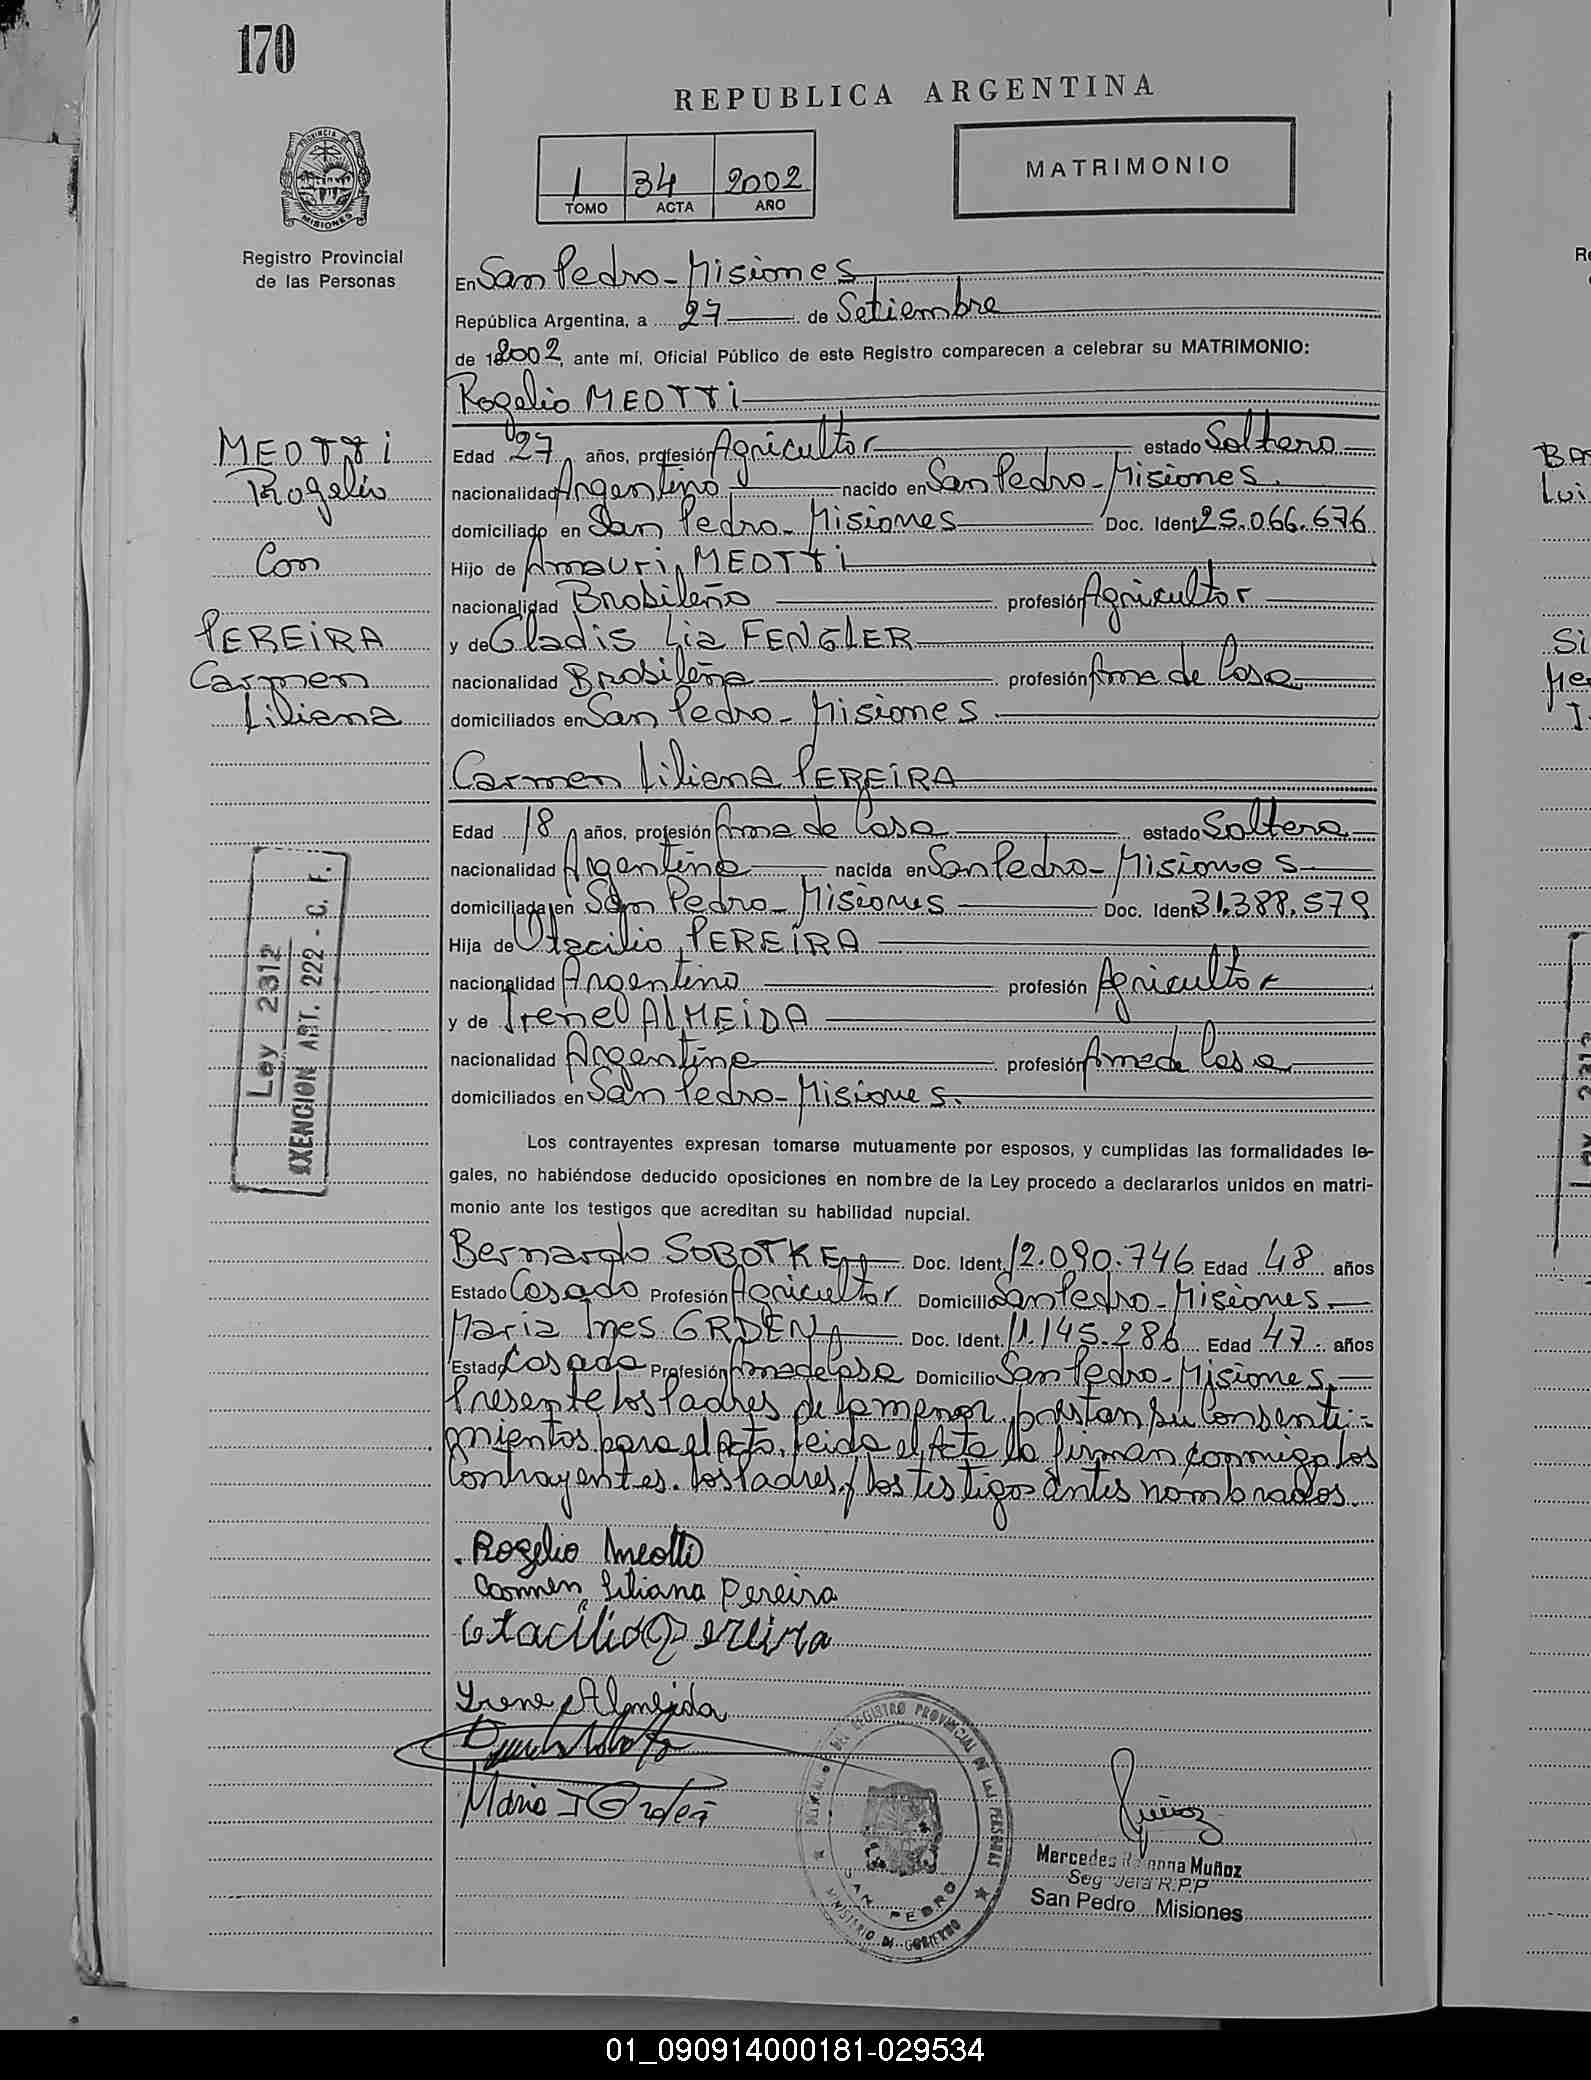 170
REPUBLICA ARGENTINA
PROVINCIA DE
MISIONES
Registro Provincial
de las Personas
1 34 2002
TOMO ACTA AÑO
MATRIMONIO
En San Pedro - Misiones
República Argentina, a 27 de Setiembre
de 12002, ante mí, Oficial Público de este Registro comparecen a celebrar su MATRIMONIO:
Rogelio MEOTTi
MEOTTi
Rogelio
Con
PEREiRA
Carmen
Liliana
Edad 27 años, profesión Agricultor estado Soltero
nacionalidad Argentino nacido en San Pedro - Misiones.
domiciliado en San Pedro - Misiones Doc. Ident 25.066.676
Hijo de Amauri MEOTTi
nacionalidad Brasileño profesión Agricultor
y de Gladis Lia FENGLER
nacionalidad Brasileña profesión Ama de Casa
domiciliados en San Pedro - Misiones.
Carmen Liliana PEREiRA
Edad 18 años, profesión Ama de Casa estado Soltera
nacionalidad Argentina nacida en San Pedro - Misiones
domiciliada en San Pedro - Misiones Doc. Ident 31.388.579
Hija de Otacilio PEREiRA
nacionalidad Argentino profesión Agricultor
y de Irene ALMEiDA
nacionalidad Argentina profesión Ama de Casa
domiciliados en San Pedro - Misiones.
Ley 2312
EXENCION ART. 222 - C. F.
Los contrayentes expresan tomarse mutuamente por esposos, y cumplidas las formalidades le-
gales, no habiéndose deducido oposiciones en nombre de la Ley procedo a declararlos unidos en matri-
monio ante los testigos que acreditan su habilidad nupcial.
Bernardo Doc. Ident. 12.090.746 Edad 48 años
Estado Casado Profesión Agricultor Domicilio San Pedro - Misiones.
Maria Ines GRDEN Doc. Ident. 11.145.286 Edad 47 años
Estado Casada Profesión Ama de Casa Domicilio San Pedro - Misiones.
Presente los Padres de la menor, prestan su Consenti-
mientos para el Acto. Leida el Acta la firman conmigo los
Contrayentes. los Padres y los testigos antes nombrados.
Rogelio Meotti
Carmen Liliana Pereira
Otacilio Pereira
Yrene Almeida
Maria I Grden
DEL REGISTRO PROVINCIAL DE LAS PERSONAS
SAN PEDRO
MINISTERIO DE GOBIERNO
Muñoz
Mercedes Ramona Muñoz
R.P.P
San Pedro Misiones
01_090914000181-029534